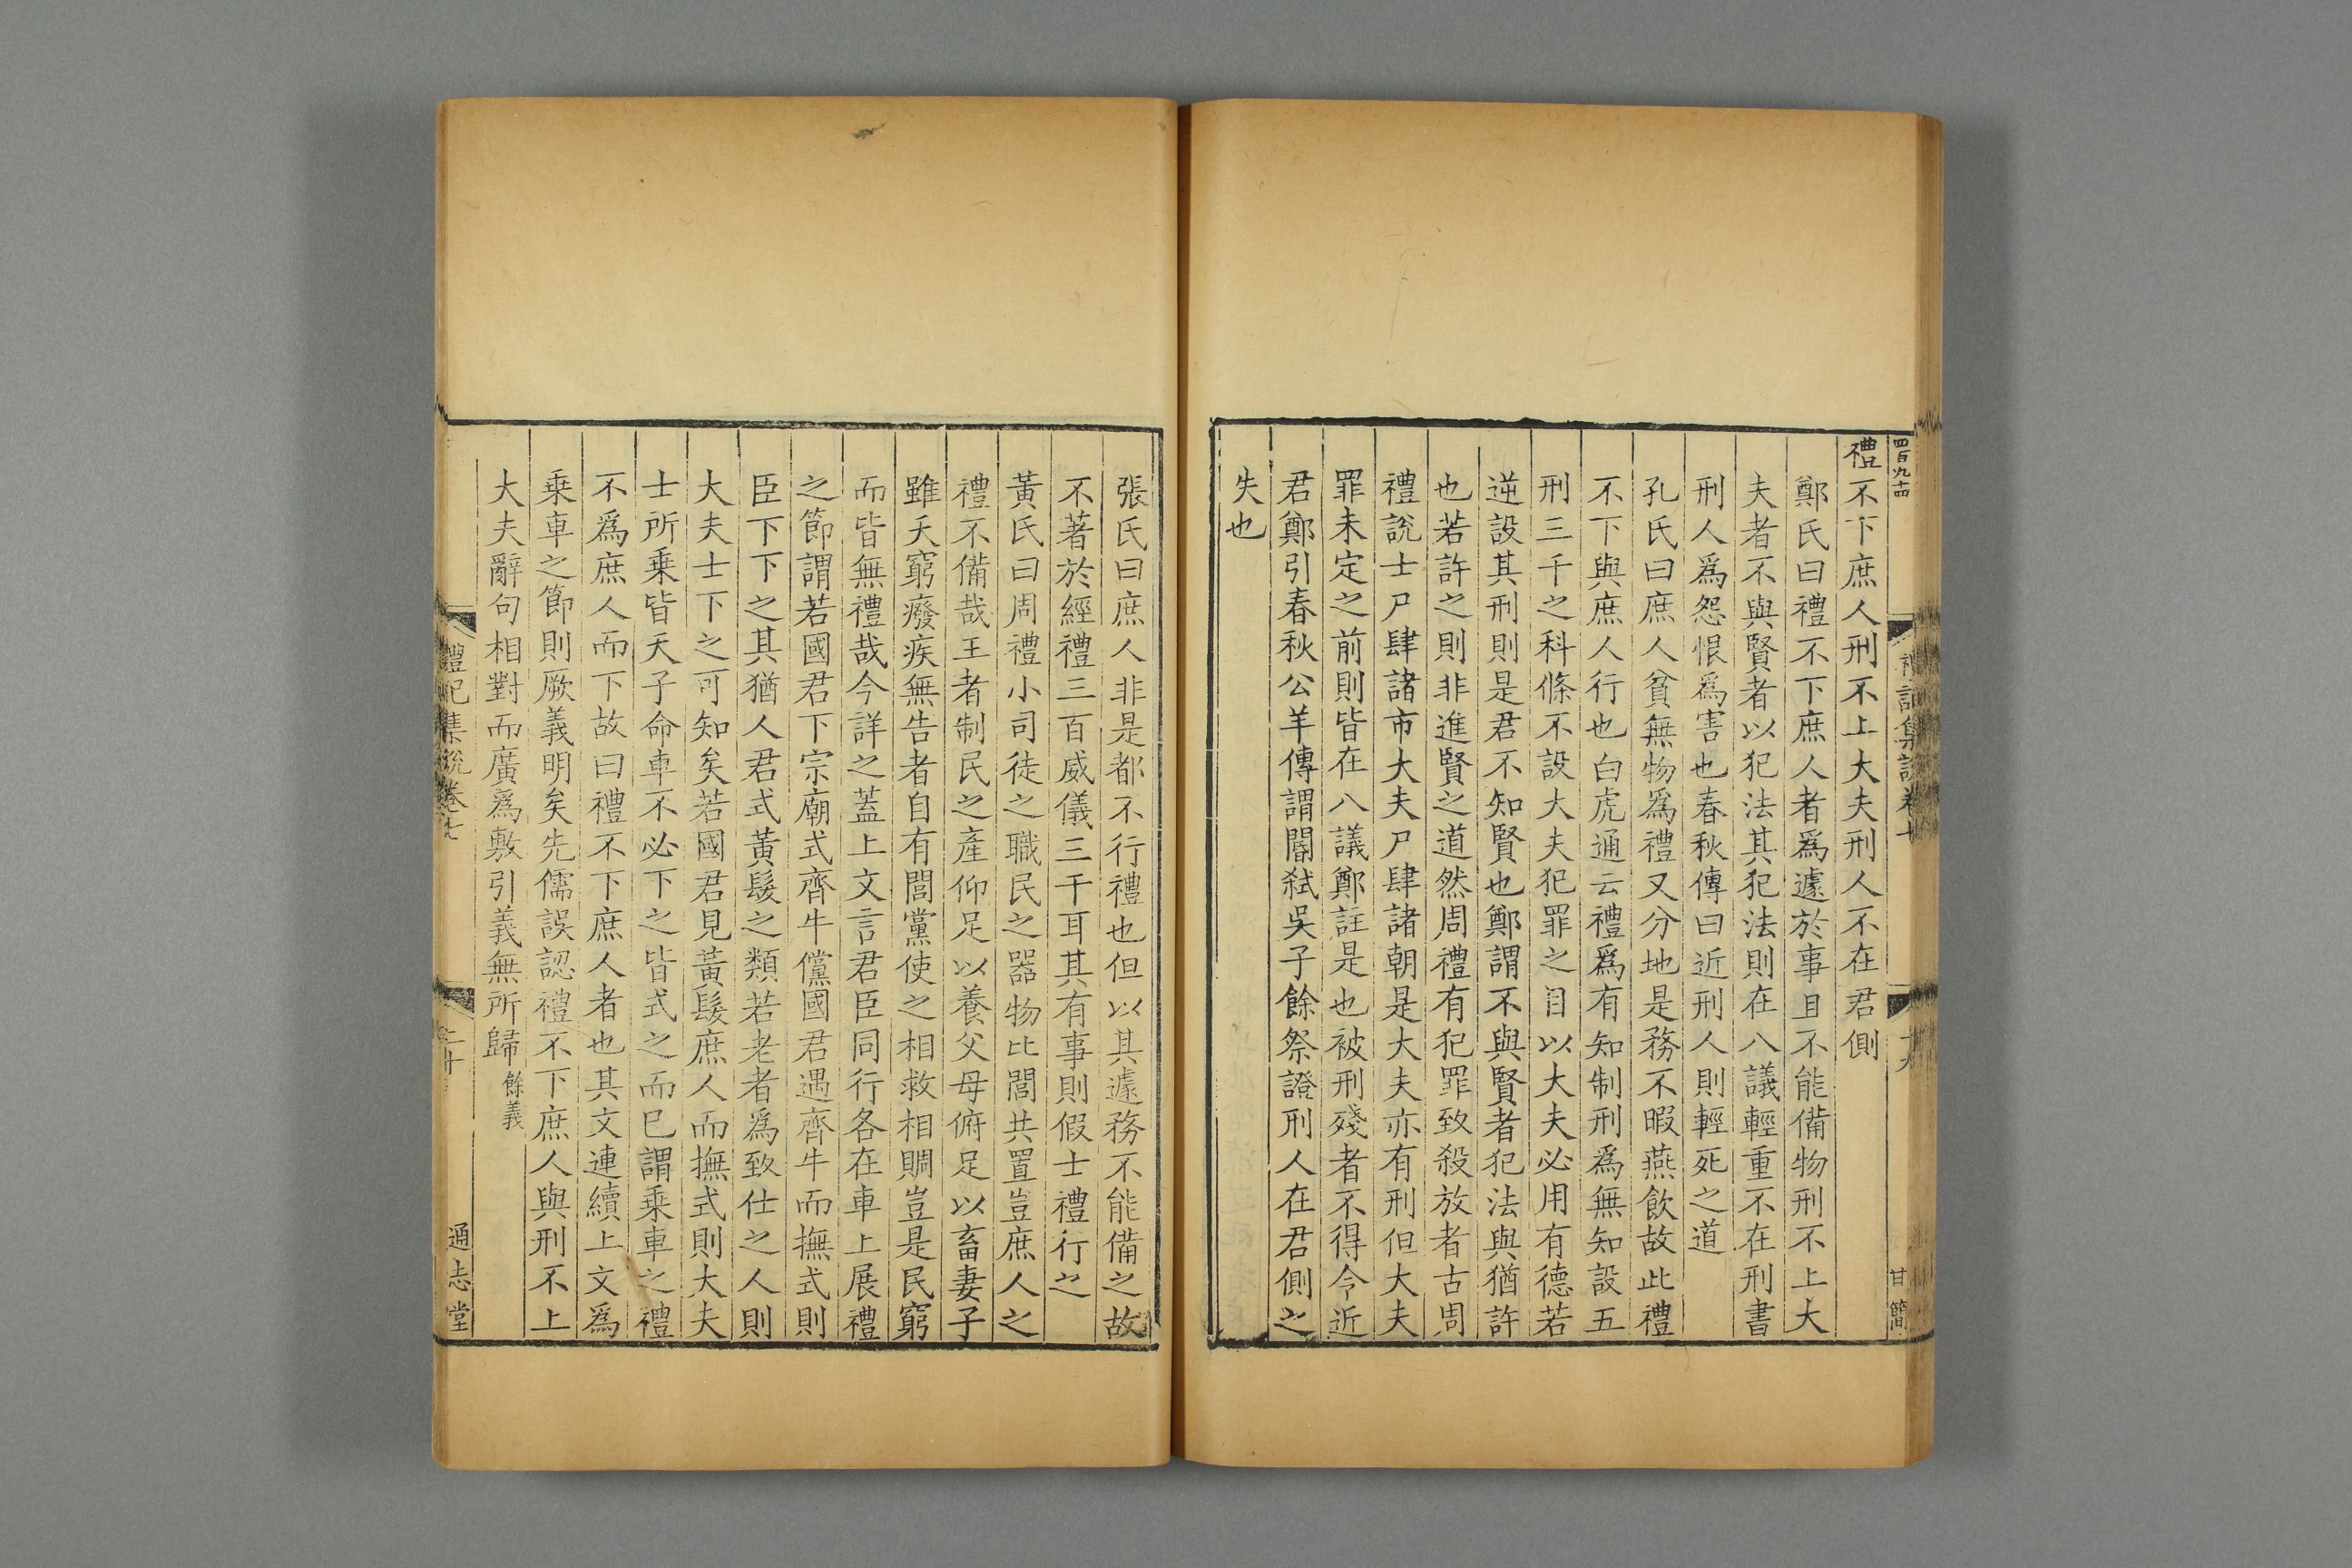 四百九十四
禮記集說卷
十九
甘簡
禮不下庶人刑不上大夫刑人不在君側
鄭氏曰禮不下庶人者爲遽於事且不能備物刑不上大
夫者不與賢者以犯法其犯法則在八議輕重不在刑書
刑人爲怨恨爲害也春秋傳曰近刑人則輕死之道
孔氏曰庶人貧無物爲禮又分地是務不暇燕飲故此禮
不下與庶人行也白虎通云禮爲有知制刑爲無知設五
刑三千之科條不設大夫犯罪之目以大夫必用有德若
逆設其刑則是君不知賢也鄭謂不與賢者犯法與猶許
也若許之則非進賢之道然周禮有犯罪致殺放者古周
禮說士尸肆諸市大夫尸肆諸朝是大夫亦有刑但大夫
罪未定之前則皆在八議鄭註是也被刑殘者不得令近
君鄭引春秋公羊傳謂閽弑吳子餘祭證刑人在君側之
失也
張氏曰庶人非是都不行禮也但以其遽務不能備之故
不著於經禮三百威儀三千耳其有事則假士禮行之
黃氏曰周禮小司徒之職民之器物比閭共置豈庶人之
禮不備哉王者制民之產仰足以養父母俯足以畜妻子
雖夭窮癈疾無告者自有閭黨使之相救相賙豈是民窮
而皆無禮哉今詳之蓋上文言君臣同行各在車上展禮
之節謂若國君下宗廟式齊牛儻國君遇齊牛而撫式則
臣下下之其猶人君式黃髮之類若老者爲致仕之人則
大夫士下之可知矣若國君見黃髮庶人而撫式則大夫
士所乘皆天子命車不必下之皆式之而已謂乘車之禮
不爲庶人而下故曰禮不下庶人者也其文連續上文爲
乘車之節則厥義明矣先儒誤認禮不下庶人與刑不上
大夫辭句相對而廣爲敷引義無所歸餘義
禮記集說卷七
二十
通志堂